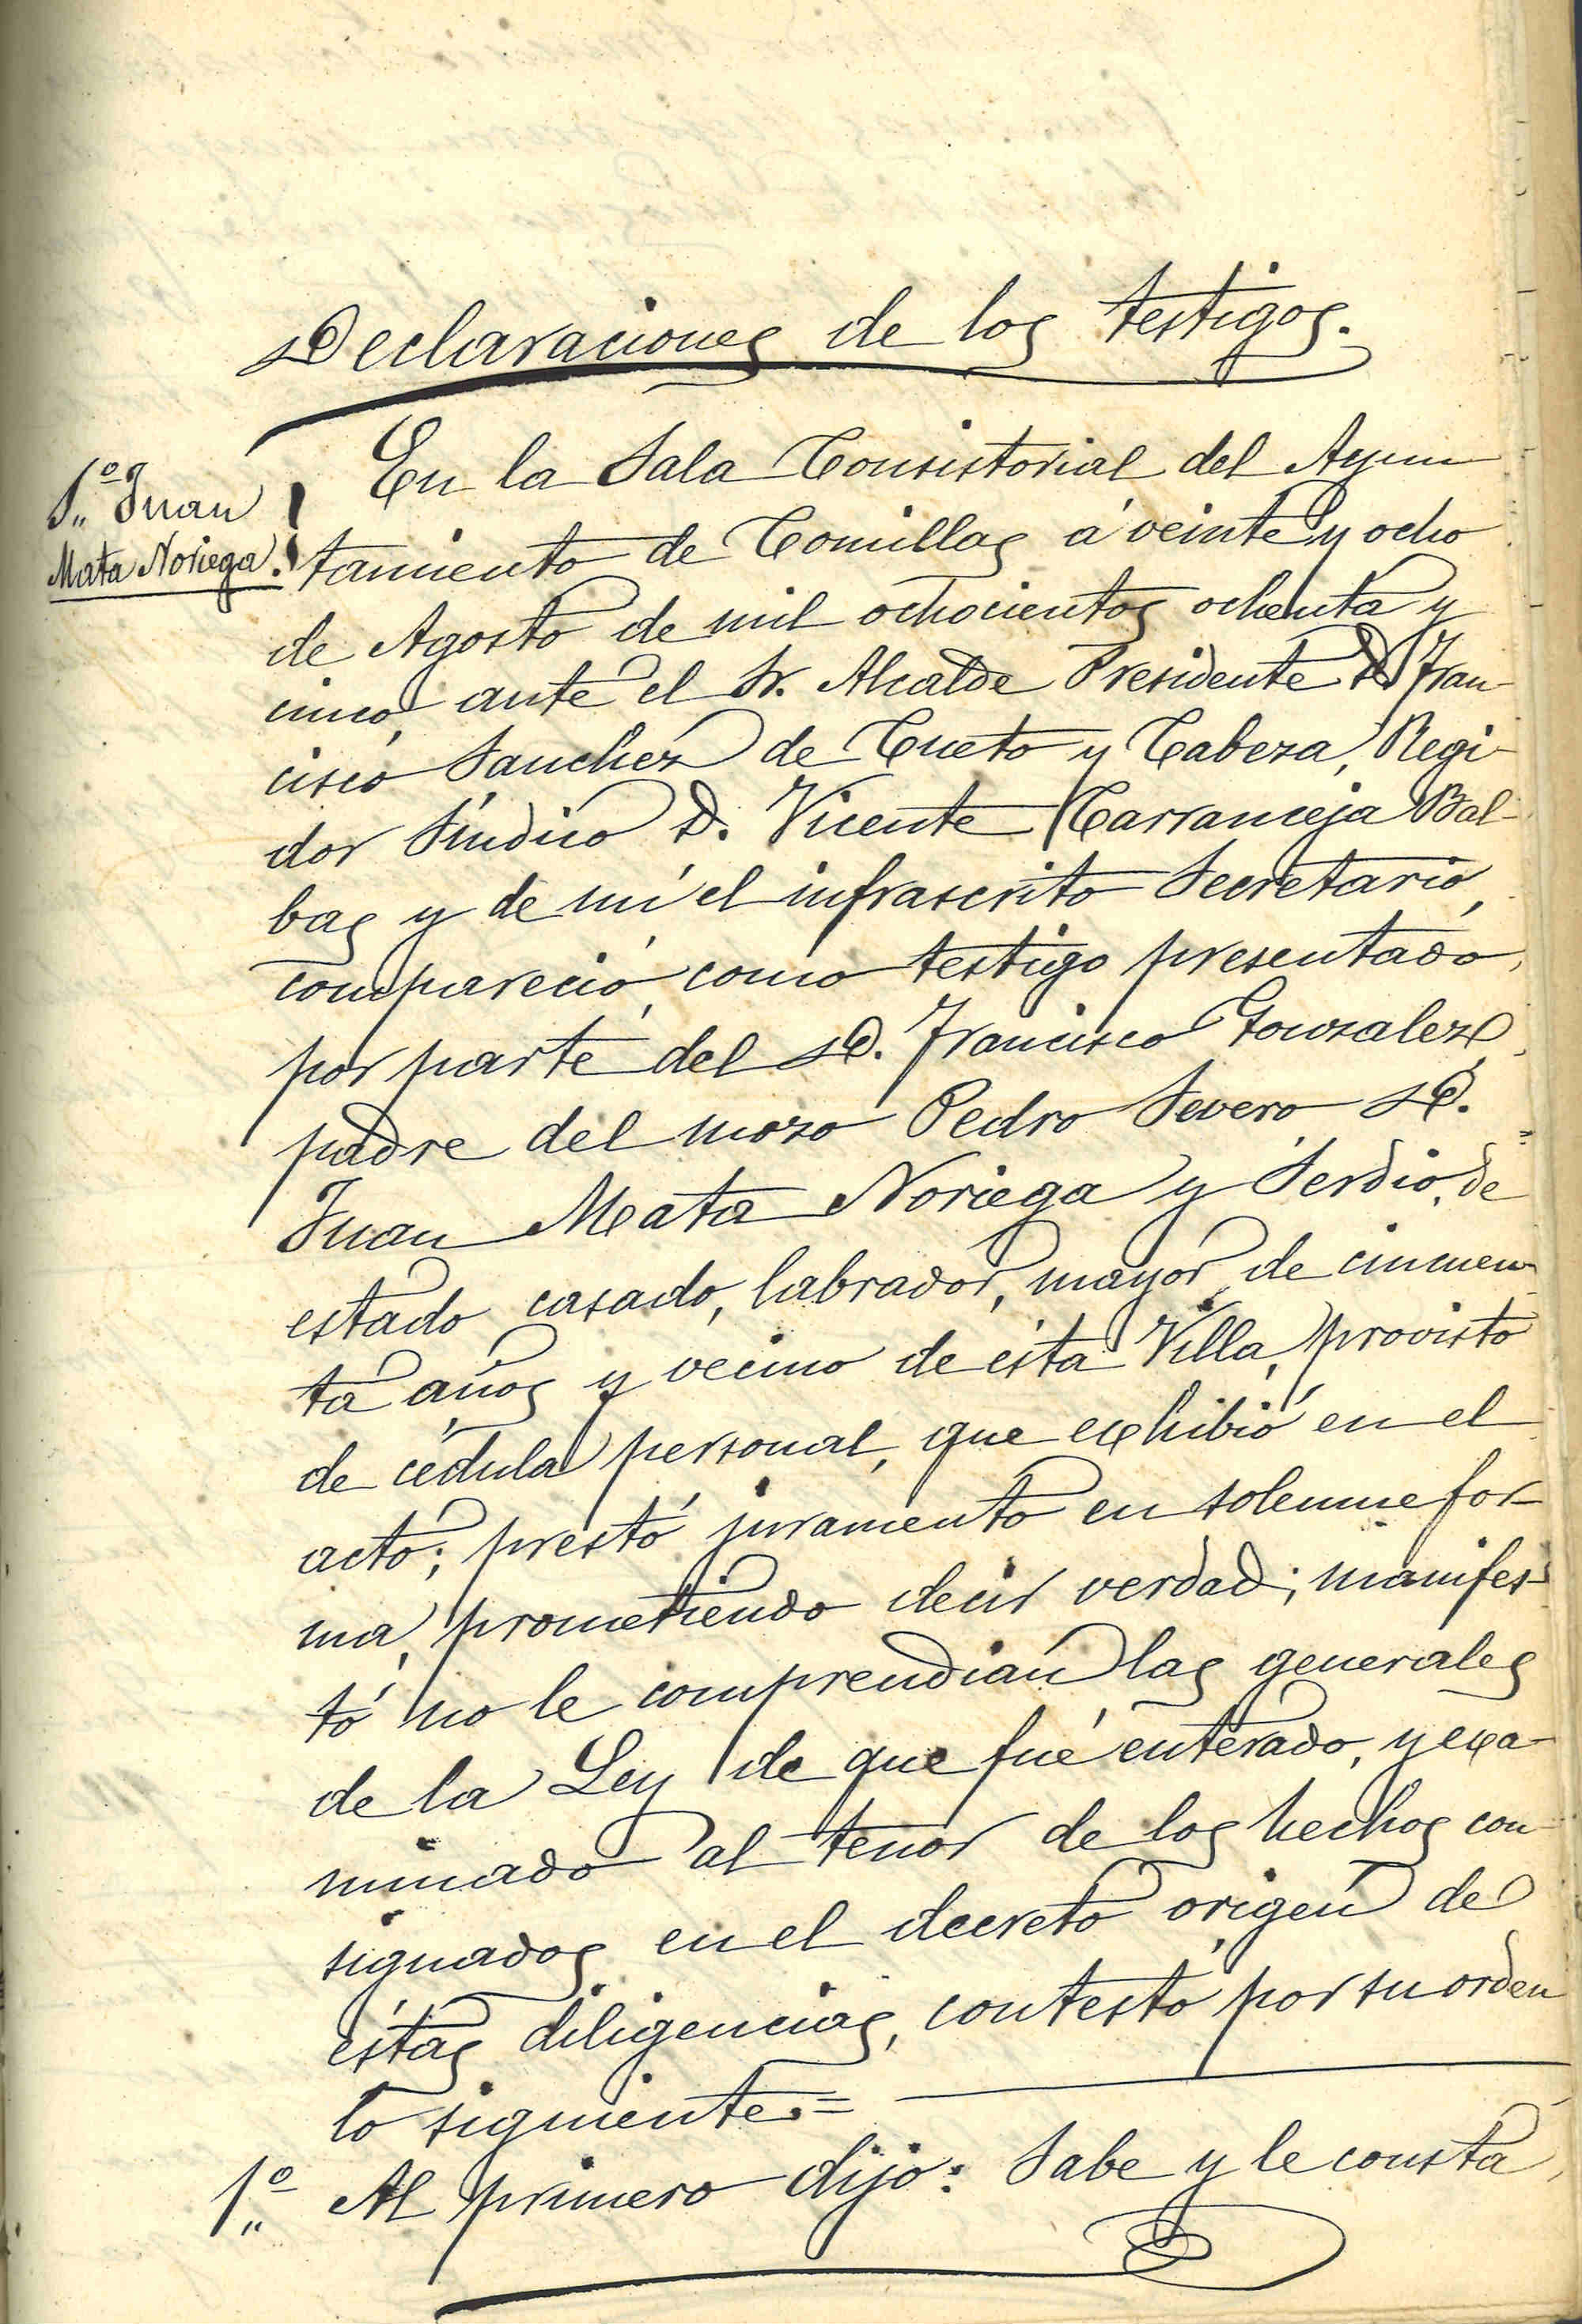 Declaraciones de los testigos.
1.º Juan
Mata Noriega.
En la Sala Consistorial del Ayun
tamiento de Comillas á veinte y ocho
de Agosto de mil ochocientos ochenta y
cinco, ante el Sr. Alcalde Presidente D. Fran-
cisco Sanchez de Cueto y Cabeza, Regi-
dor Síndico D. Vicente Carranceja Bal-
bas y de mí el infrascrito Secretario,
compareció, como testigo presentado,
por parte del D. Francisco Gonzalez,
padre del mozo Pedro Severo D.
Juan Mata Noriega y Serdio, de
estado casado, labrador, mayor de cincuen-
ta años y vecino de ésta Villa, provisto
de cédula personal, que exhibió en el
acto; prestó juramento en solemne for-
ma, prometiendo decir verdad; manifes-
tó no le comprendian las generales
de la Ley de que fué enterado, y exa-
minado al tenor de los hechos con-
signados en el decreto origen de
éstas diligencias, contestó por su orden
lo siguiente.=
1.º Al primero dijo: Sabe y le consta,